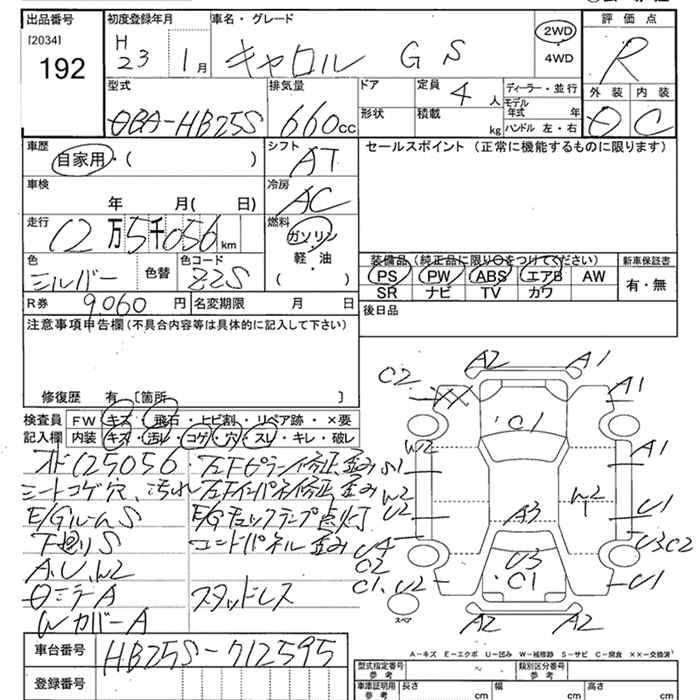 出品番号 初度登録年月 車名・グレード 2WD 4WD 評価点
[2034]
192
H 23 1月 キャロル G S R
型式 排気量 ドア 定員 4人 ディーラー・並行 外装 内装
モデル年式 年
DBA-HB25S 660cc 形状 積載 kg ハンドル 左・右 D C
車歴 シフト セールスポイント(正常に機能するものに限ります)
自家用・( ) AT
車検 冷房
年 月( 日) AC
走行 燃料
12万5千056km ガソリン
軽・油
( )
色 色替 色コード
シルバー Z2S
装備品(純正品に限り○をつけてください) 新車保証書
PS PW ABS エアB AW 有・無
SR ナビ TV カワ
R券 9,060円 名変期限 月 日 後日品
注意事項申告欄(不具合内容等は具体的に記入して下さい)
修復歴 有 [箇所 ]
検査員 FW キズ・飛石・ヒビ割・リペア跡・×要
記入欄 内装 キズ・汚レ・コゲ・穴・スレ・キレ・破レ
125056 左Fピラー修正歪み S1
シートコゲ穴、汚れ 左Fインパネ修正、歪み
E/GルームS E/Gチェックランプ点灯
下廻りS コードパネル歪み
A,U,W2
A スタッドレス
WカバーA
車台番号 HB25S-712595
登録番号
A2 A1
C2 A1
C1
W2 A1
W2 U2 W2 U1
A3
U4 C2 U3 U3C2
C1, U2 C1 U1
スペア A2 A2
A-キズ E-エクボ U-凹み W-補修跡 S-サビ C-腐食 ××-交換済
型式指定番号 参考 類別区分番号 参考
車庫証明用 参考 長さ cm 幅 cm 高さ cm